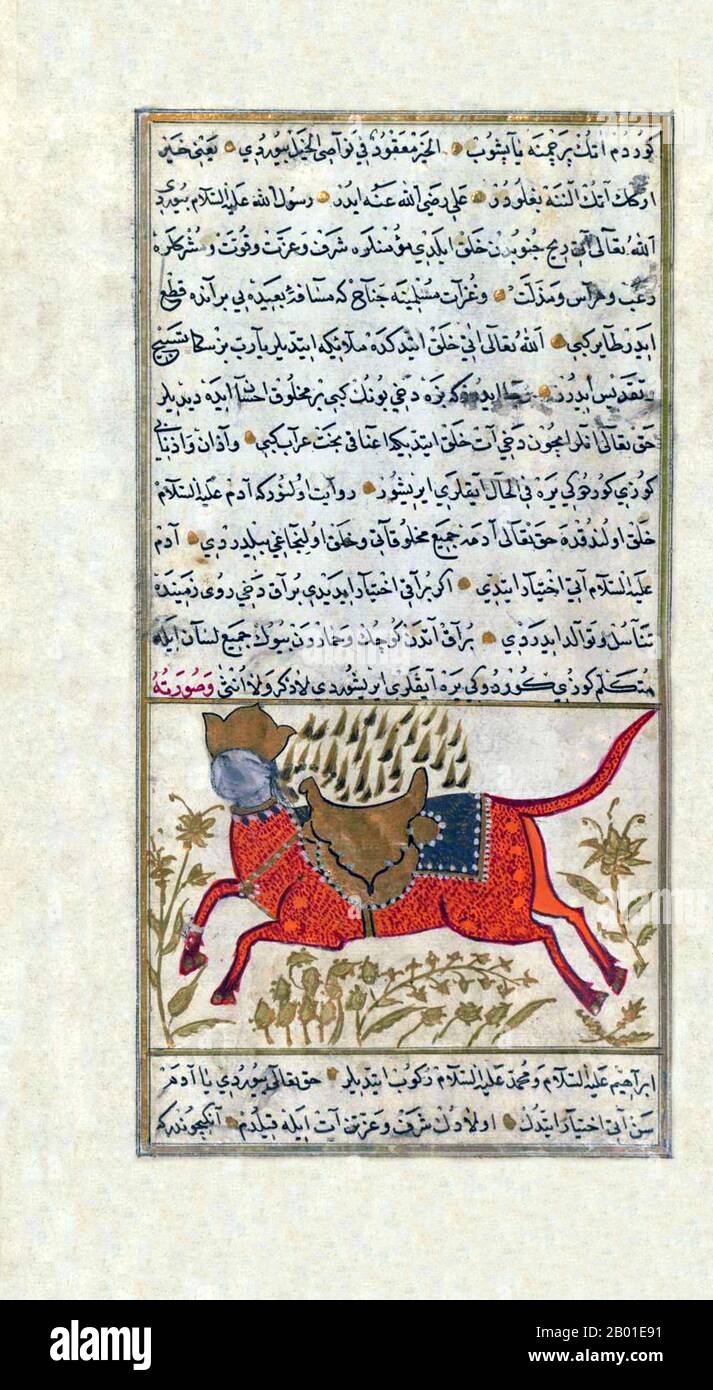 كوردم اتك پرچمنه ياپيشوب الخير معقود في نواصي الخيل بيوردي يعني خير
علي رضي الله عنه ايدر رسول الله عليه السلام بيوردي
الله تعالى آتي ريح جنوبدن خلق ايلدي مؤمنلره شرف وعزت وقوت ومشركلره
رعب وهراس ومذلت وغزات مسلمينه جناح كه مسافۀ بعيده يي بر آنده قطع
ايدر طاير كبي الله تعالى اتي خلق ايتدكده ملائكه ايتديلر يارب بز سكا تسبيح
تقديس ايدرز رجا ايدرز كه بزه دخي بونك كبي بر مخلوق احسان ايده ديديلر
حق تعالى انلر ايچون دخي آت خلق ايتدي كه اعناقي بخت عراب كبي وآذان
كوزي كوردوكي يره في الحال آيقلري ايريشور روايت اولنور كه آدم عليه السلام
خلق اولندقده حق تعالى آدمه جميع مخلوقاتي وخلق اوليجاغي بيلدردي آدم
عليه السلام آتي اختيار ايتدي اكر براقي اختيار ايديدي براق دخي روي زمينده
تناسل وتوالد ايدردي براق آتدن كوچك وحماردن بيوك جميع لسان ايله
متكلم كوزي كوردوكي يره آيقلري ايريشوردي لا ذكر ولا انثى وصورته
ابراهيم عليه السلام ومحمد عليه السلام ركوب ايتديلر حق تعالى بيوردي يا آدم
سن آتي اختيار ايتدك اولادك شرف وعزتن آت ايله قيلدم آنكيچوندر كه
alamy
alamy
alamy
Image ID: 2B01E91
www.alamy.com